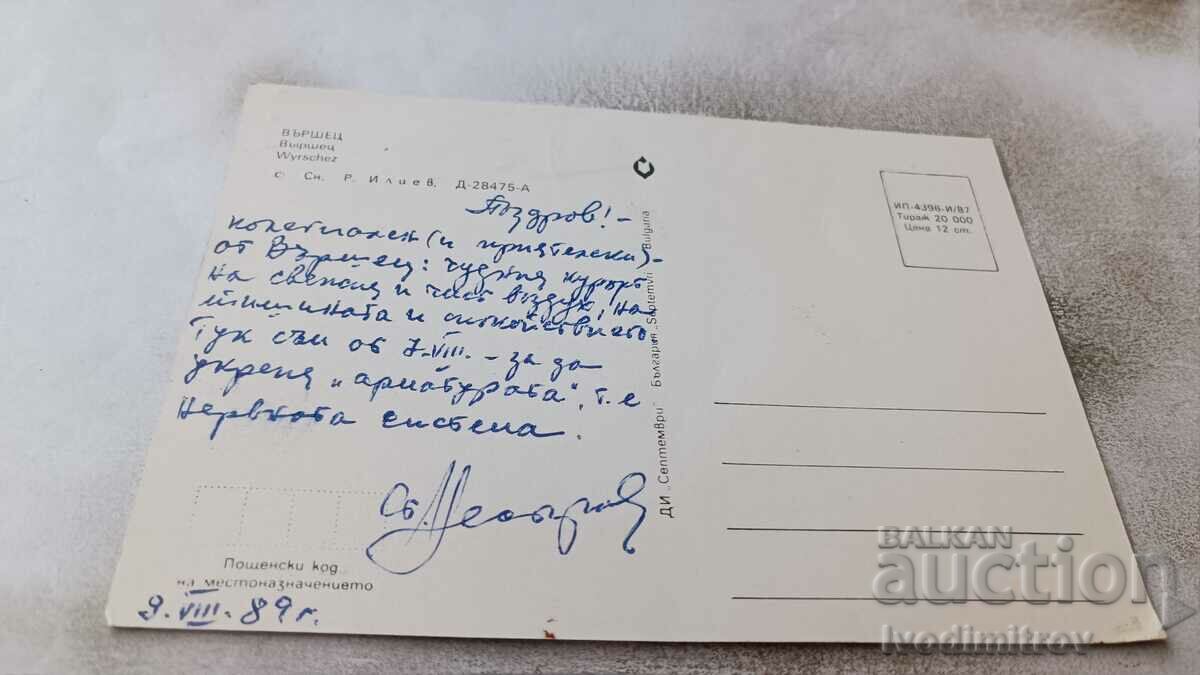 ВЪРШЕЦ
Выршец
Wyrschez
Сн. Р. Илиев. Д-28475-А
Поздрав! -
колегиален (и приятелски) -
от Вършец: чудния курорт
на свежия и чист въздух, на
тишината и спокойствието.
Тук съм от 7.VIII. - за да
укрепя „арматурата", т.е
нервната система.
Св.
Пощенски код
на местоназначението
9.VIII.89 г.
ДИ „Септември" България „Septemvri" Bulgaria
ИП-4396-И/В7
Тираж 20 000
Цена 12 ст.
BALKAN
auction
Ivodimitrov